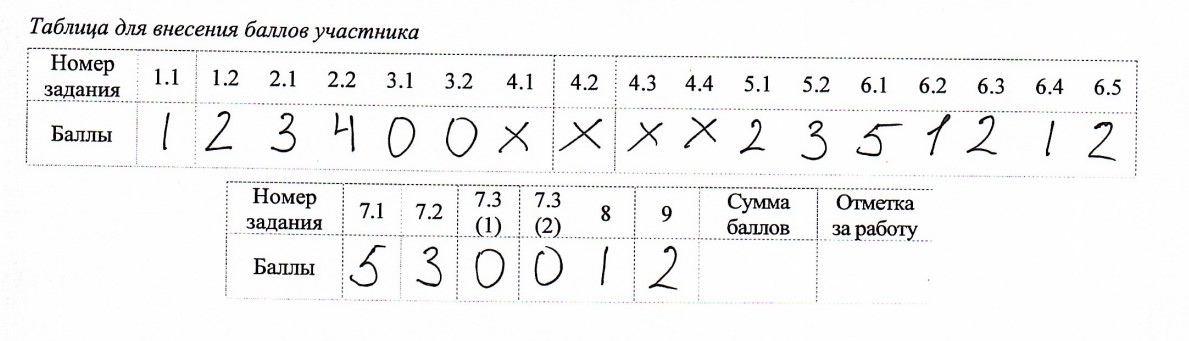 Таблица для внесения баллов участника
Номер задания 1.1 1.2 2.1 2.2 3.1 3.2 4.1 4.2 4.3 4.4 5.1 5.2 6.1 6.2 6.3 6.4 6.5
Баллы 1 2 3 4 0 0 X X X X 2 3 5 1 2 1 2
Номер задания 7.1 7.2 7.3 (1) 7.3 (2) 8 9 Сумма баллов Отметка за работу
Баллы 5 3 0 0 1 2